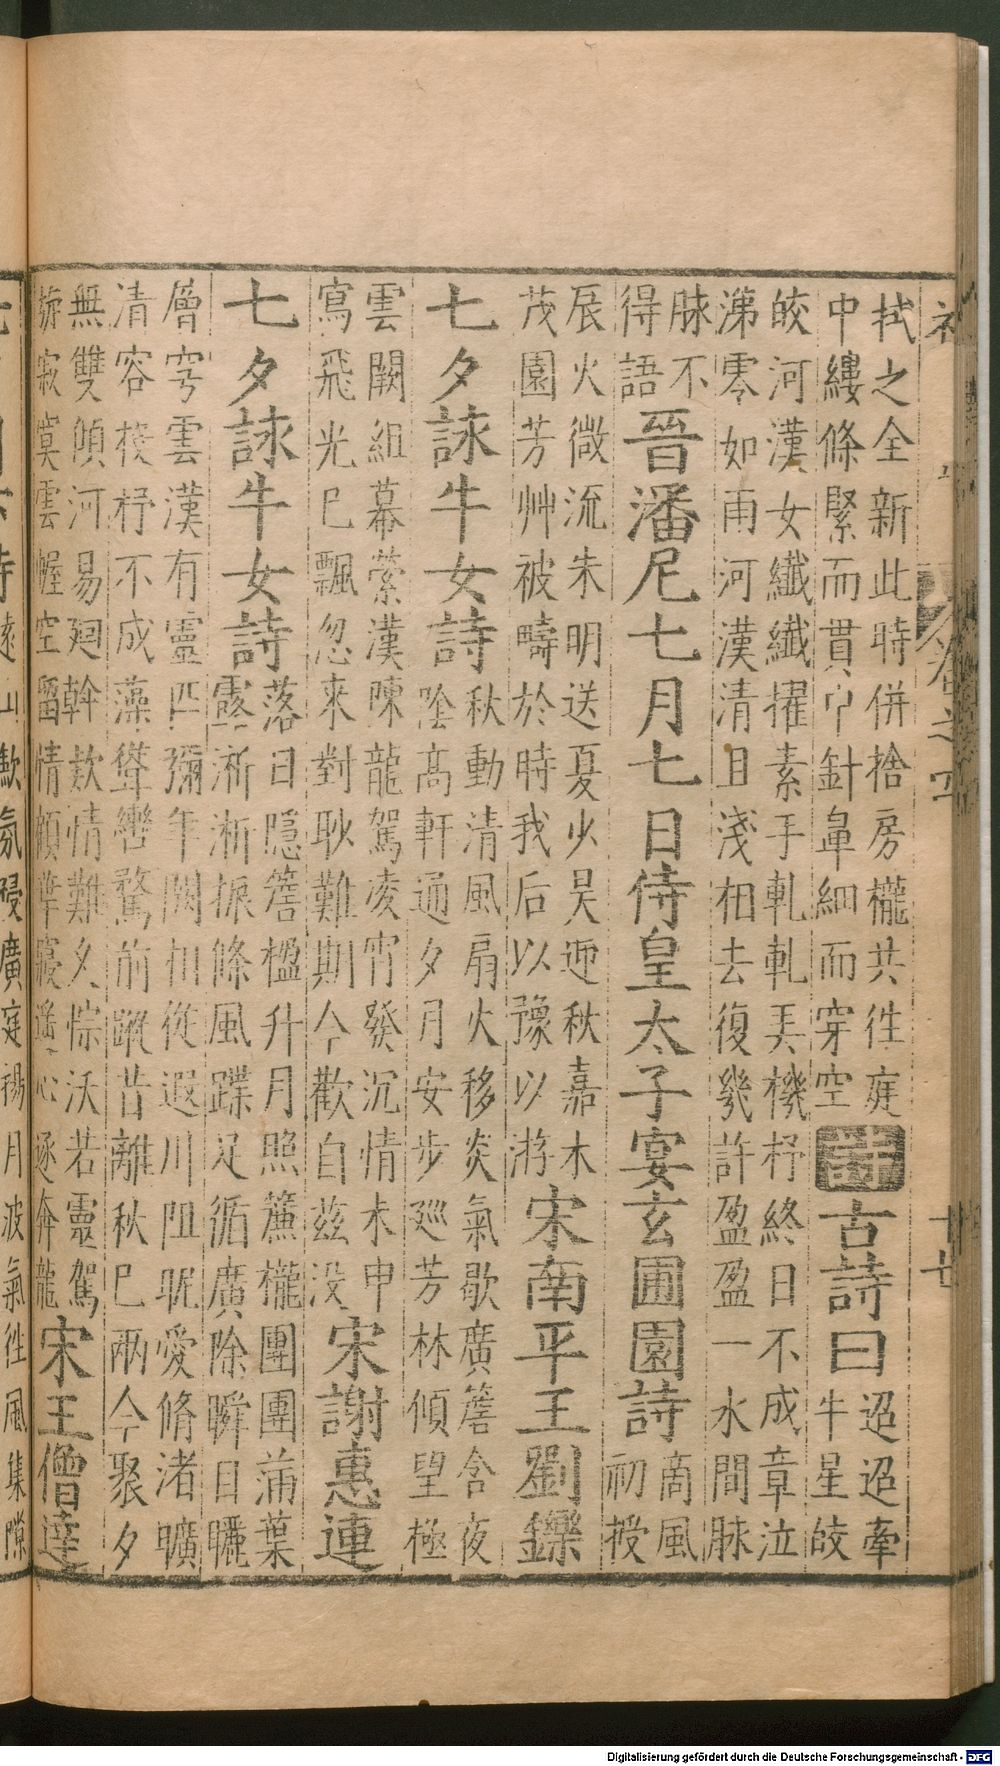 拭之全新此時併捨房櫳共徃庭
中縷條緊而貫中針鼻細而穿空
詩 古詩曰
迢迢牽
牛星皎
皎河漢女纖纖擢素手軋軋弄機杼終日不成章泣
涕零如雨河漢清且淺相去復幾許盈盈一水間脉
脉不
得語
晉潘尼七月七日侍皇太子宴玄圃園詩
商風
初授
辰火微流朱明送夏少昊迎秋嘉木
茂園芳艸被疇於時我后以豫以游
宋南平王劉鑠
七夕詠牛女詩
秋動清風扇火移炎氣歇廣簷含夜
陰高軒通夕月安步巡芳林傾望極
雲闕組幕縈漢陳龍駕凌宵發沉情未申
寫飛光已飄忽來對眇難期今歡自茲没
宋謝惠連
七夕詠牛女詩
落日隱簷楹升月照簾櫳團團蒲葉
露淅淅振條風蹀足循廣除瞬目矖
層穹雲漢有靈匹彌年闕相從遐川阻昵愛脩渚曠
清容椄杼不成藻聳轡騖前蹤昔離秋已兩今聚夕
無雙傾河易廻斡款情難久悰沃若靈駕
旂寂寞雲幄空留情顧華寢遥心逐奔龍
宋王僧達
遠山斂氛祲廣庭揚月波氣徃風集隙
卷之四
十七
Digitalisierung gefördert durch die Deutsche Forschungsgemeinschaft - DFG